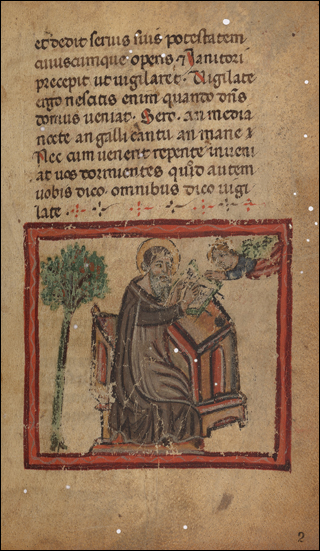 et dedit seruis suis potestatem
cuiuscumque operis ⁊ Ianitori
precepit ut uigilaret. Uigilate
ergo nescitis enim quando dn̄s
domus ueniat. Sero. an media
nocte an galli cantu an mane
Nec cum uenerit repente inueni
at uos dormientes quod autem
uobis dico omnibus dico uigi
late.
2